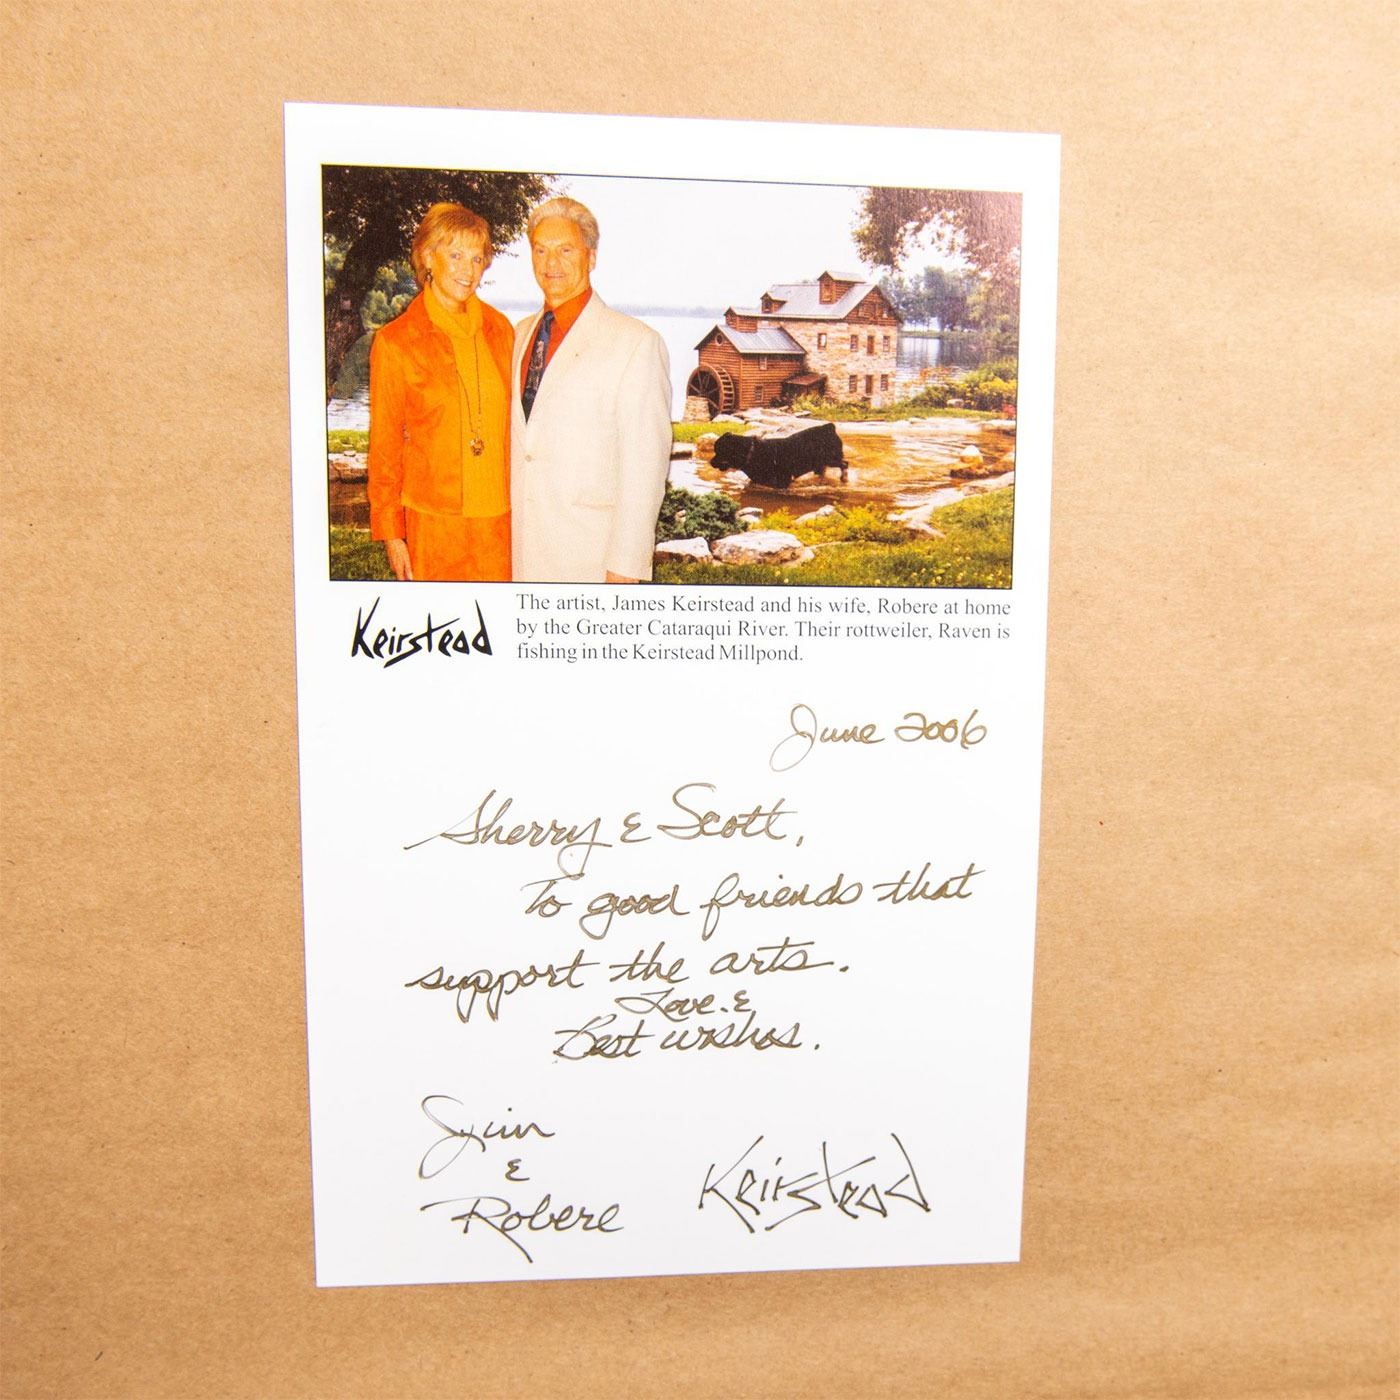 Keirstead
The artist, James Keirstead and his wife, Robere at home
by the Greater Cataraqui River. Their rottweiler, Raven is
fishing in the Keirstead Millpond.
June 2006
Sherry & Scott,
To good friends that
support the arts.
Love &
Best wishes.
Jim
&
Robere
Keirstead